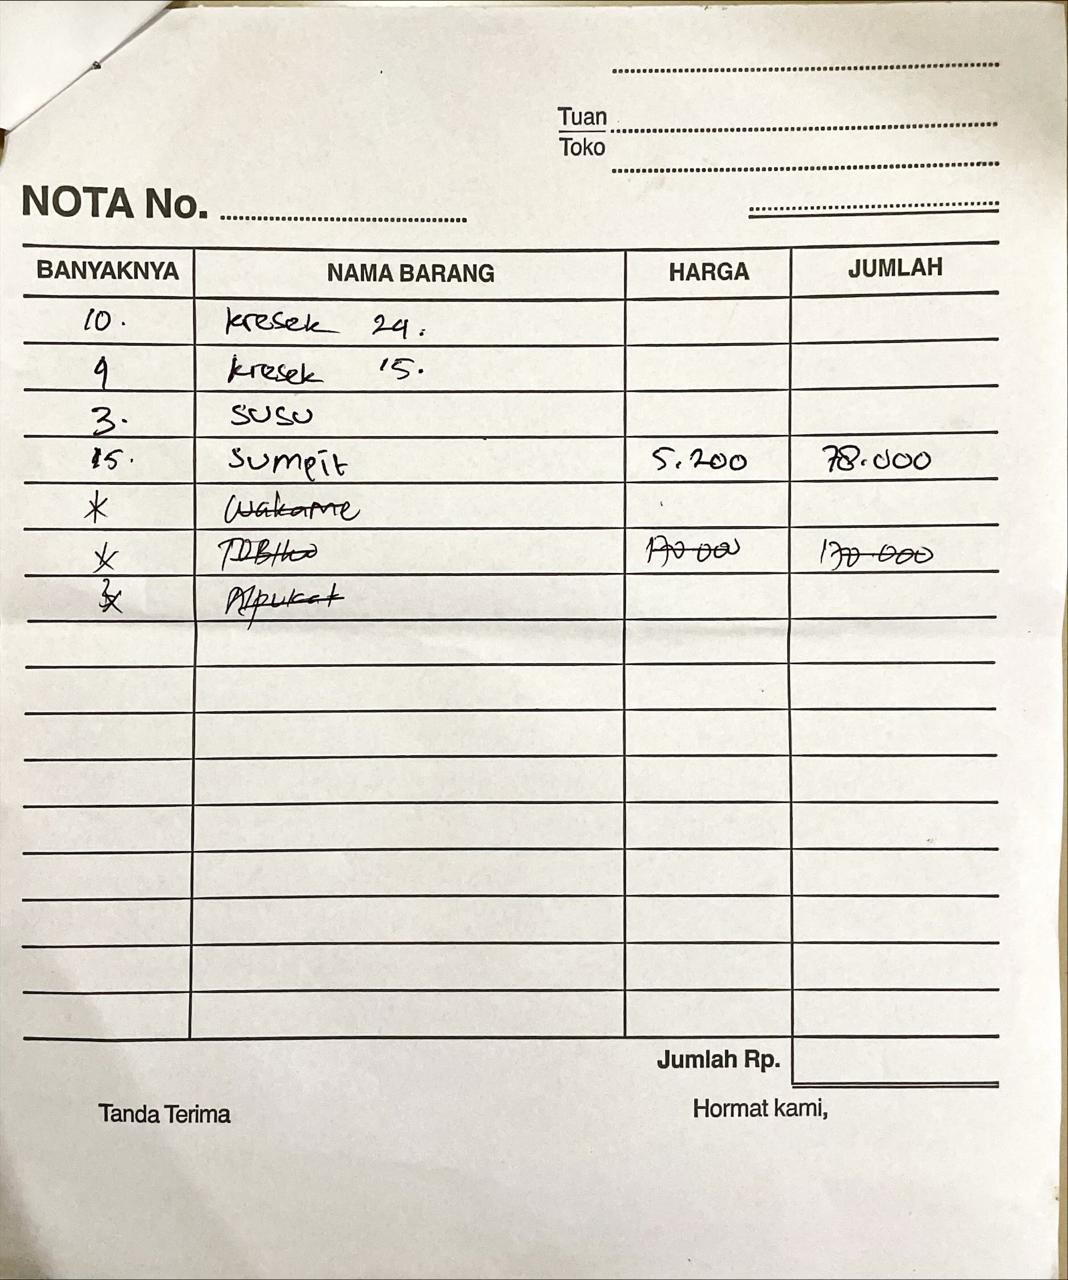 Tuan
Toko
NOTA No.
BANYAKNYA NAMA BARANG HARGA JUMLAH
10. kresek 24.
9 kresek 15.
3. susu
15. Sumpit 5.200 78.000
Wakame
170.000 170.000
Alpukat
Jumlah Rp.
Tanda Terima Hormat kami,